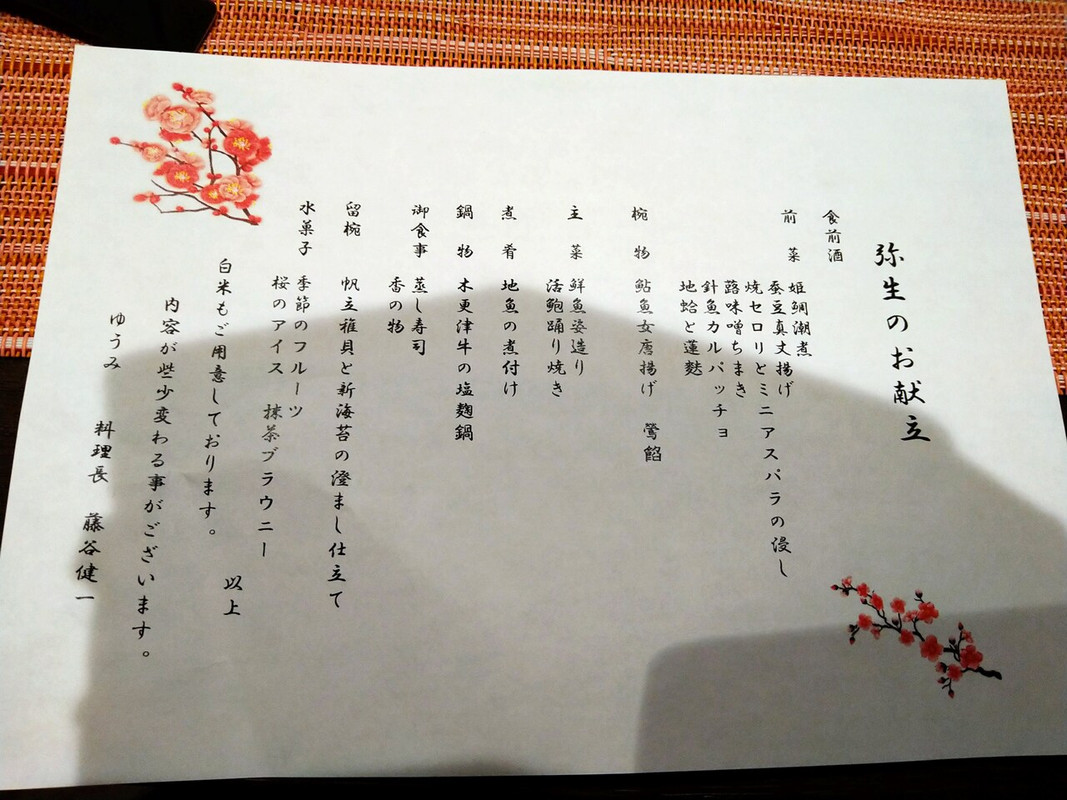 弥生のお献立
食前酒
前菜 姫鯛潮煮
蚕豆真丈揚げ
焼セロリとミニアスパラの浸し
蕗味噌ちまき
針魚カルパッチョ
地蛤と蓮麩
椀物 鮎魚女唐揚げ 鶯餡
主菜 鮮魚姿造り
活鮑踊り焼き
煮肴 地魚の煮付け
鍋物 木更津牛の塩麹鍋
御食事 蒸し寿司
香の物
留椀 帆立稚貝と新海苔の澄まし仕立て
水菓子 季節のフルーツ
桜のアイス 抹茶ブラウニー
以上
白米もご用意しております。
内容が些少変わる事がございます。
ゆうみ 料理長 藤谷健一